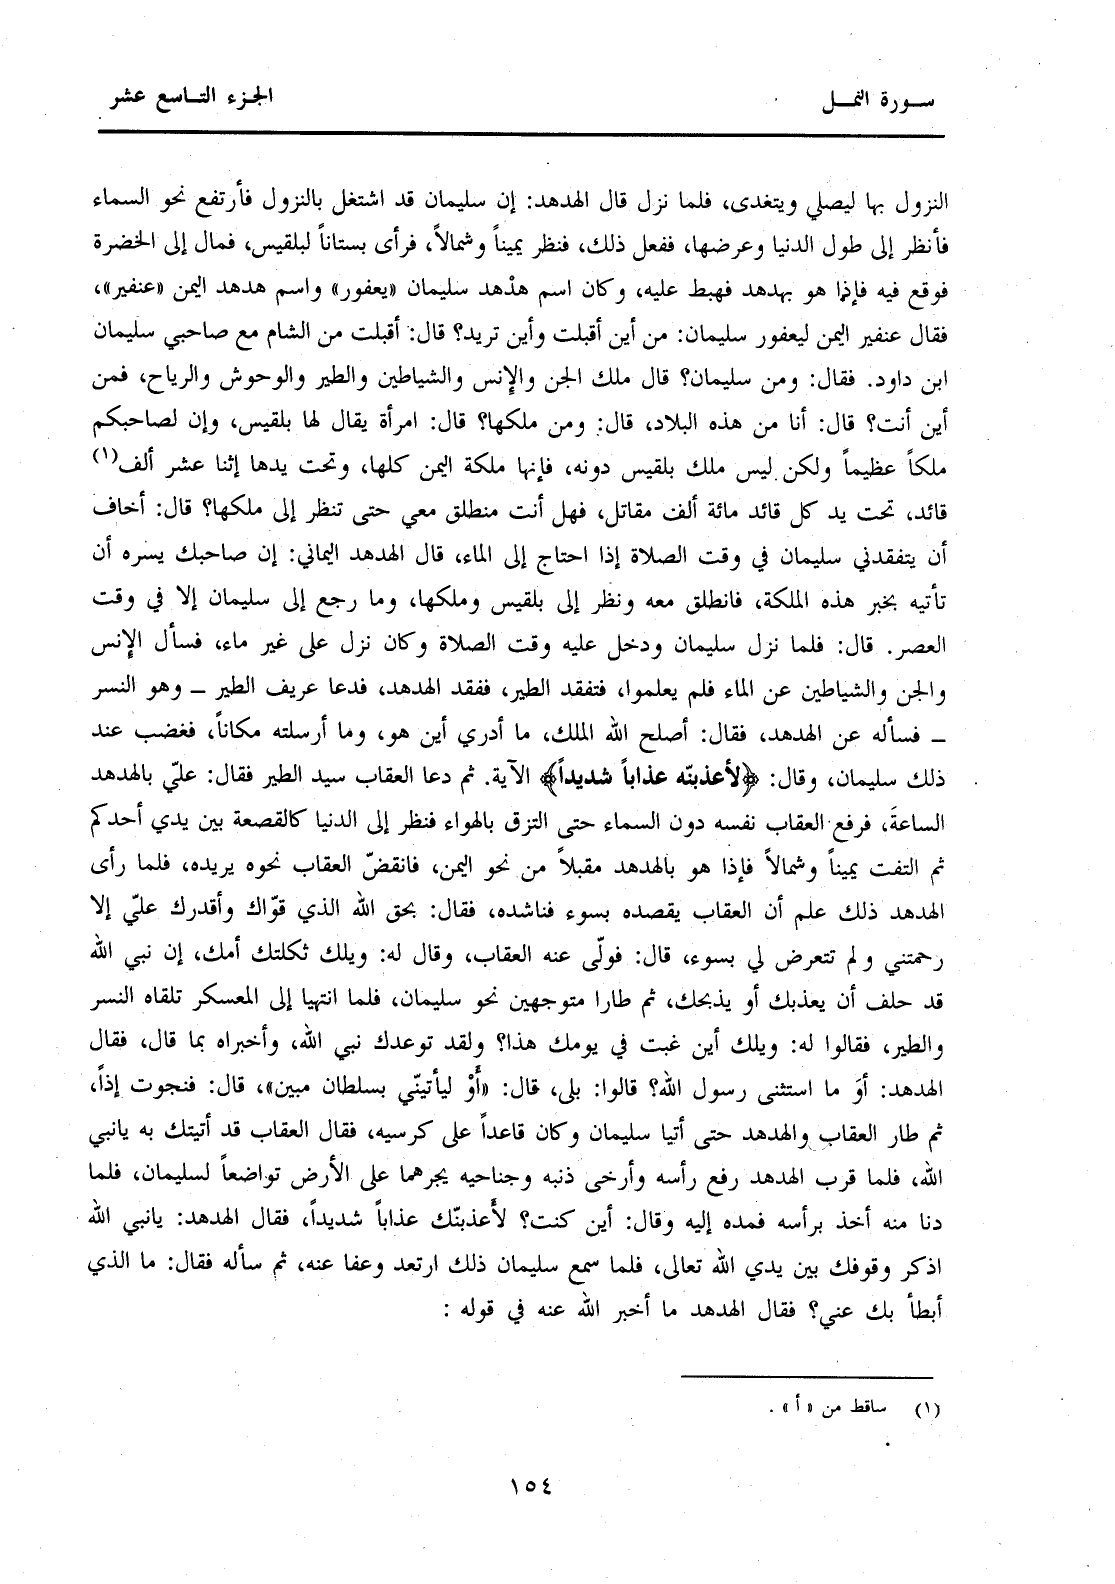 سورة النمل
الجزء التاسع عشر
النزول بها ليصلي ويتغدى، فلما نزل قال الهدهد: إن سليمان قد اشتغل بالنزول فأرتفع نحو السماء
فأنظر إلى طول الدنيا وعرضها، ففعل ذلك، فنظر يميناً وشمالاً، فرأى بستاناً لبلقيس، فمال إلى الخضرة
فوقع فيه فإذا هو بهدهد فهبط عليه، وكان اسم هدْهد سليمان «يعفور» واسم هدهد اليمن «عنفير»،
فقال عنفير اليمن ليعفور سليمان: من أين أقبلت وأين تريد؟ قال: أقبلت من الشام مع صاحبي سليمان
ابن داود. فقال: ومن سليمان؟ قال ملك الجن والإنس والشياطين والطير والوحوش والرياح، فمن
أين أنت؟ قال: أنا من هذه البلاد، قال: ومن ملكها؟ قال: امرأة يقال لها بلقيس، وإن لصاحبكم
ملكاً عظيماً ولكن ليس ملك بلقيس دونه، فإنها ملكة اليمن كلها، وتحت يدها إثنا عشر ألف(١)
قائد، تحت يد كل قائد مائة ألف مقاتل، فهل أنت منطلق معي حتى تنظر إلى ملكها؟ قال: أخاف
أن يتفقدني سليمان في وقت الصلاة إذا احتاج إلى الماء، قال الهدهد اليماني: إن صاحبك يسره أن
تأتيه بخبر هذه الملكة، فانطلق معه ونظر إلى بلقيس وملكها، وما رجع إلى سليمان إلا في وقت
العصر. قال: فلما نزل سليمان ودخل عليه وقت الصلاة وكان نزل على غير ماء، فسأل الإنس
والجن والشياطين عن الماء فلم يعلموا، فتفقد الطير، ففقد الهدهد، فدعا عريف الطير ــ وهو النسر
ــ فسأله عن الهدهد، فقال: أصلح الله الملك، ما أدري أين هو، وما أرسلته مكاناً، فغضب عند
ذلك سليمان، وقال: ﴿لأعذبنّه عذاباً شديداً﴾ الآية. ثم دعا العقاب سيد الطير فقال: عليّ بالهدهد
الساعةَ، فرفع العقاب نفسه دون السماء حتى التزق بالهواء فنظر إلى الدنيا كالقصعة بين يدي أحدكم
ثم التفت يميناً وشمالاً فإذا هو بالهدهد مقبلاً من نحو اليمن، فانقضّ العقاب نحوه يريده، فلما رأى
الهدهد ذلك علم أن العقاب يقصده بسوء فناشده، فقال: بحق الله الذي قوّاك وأقدرك عليّ إلا
رحمتني ولم تتعرض لي بسوء، قال: فولّى عنه العقاب، وقال له: ويلك ثكلتك أمك، إن نبي الله
قد حلف أن يعذبك أو يذبحك، ثم طارا متوجهين نحو سليمان، فلما انتهيا إلى المعسكر تلقاه النسر
والطير، فقالوا له: ويلك أين غبت في يومك هذا؟ ولقد توعدك نبي الله، وأخبراه بما قال، فقال
الهدهد: أوَ ما استثنى رسول الله؟ قالوا: بلى، قال: «أَوْ ليأتينّي بسلطان مبين»، قال: فنجوت إذاً،
ثم طار العقاب والهدهد حتى أتيا سليمان وكان قاعداً على كرسيه، فقال العقاب قد أتيتك به يانبي
الله، فلما قرب الهدهد رفع رأسه وأرخى ذنبه وجناحيه يجرهما على الأرض تواضعاً لسليمان، فلما
دنا منه أخذ برأسه فمده إليه وقال: أين كنت؟ لأعذبنّك عذاباً شديداً، فقال الهدهد: يانبي الله
اذكر وقوفك بين يدي الله تعالى، فلما سمع سليمان ذلك ارتعد وعفا عنه، ثم سأله فقال: ما الذي
أبطأ بك عني؟ فقال الهدهد ما أخبر الله عنه في قوله :
(١) ساقط من «أ» .
١٥٤